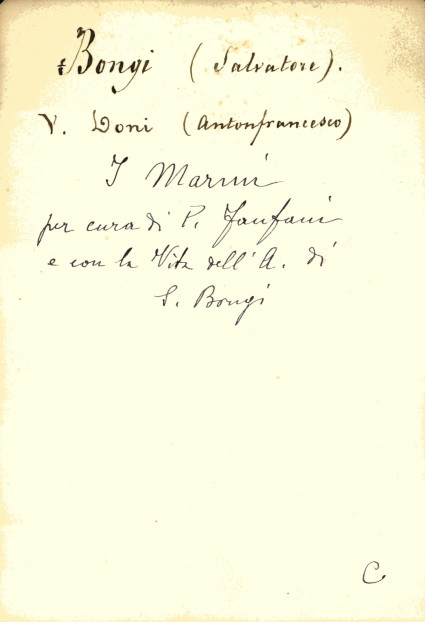 Bongi (Salvatore).
V. Doni (Antonfrancesco)
I Marmi
per cura di P. Fanfani
e con la Vita dell'A. di
S. Bongi
C